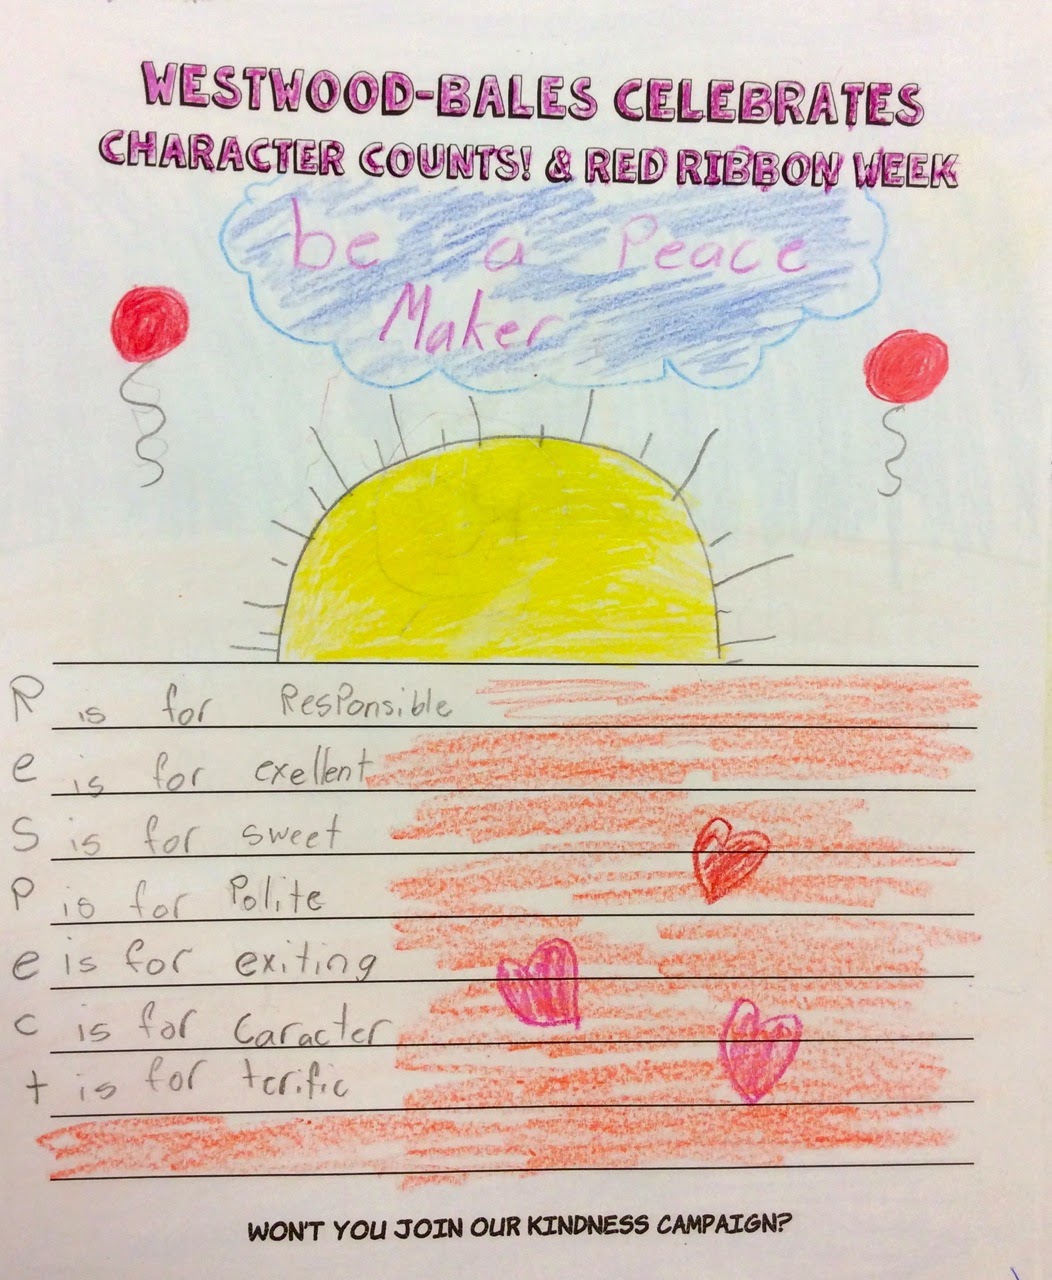 WESTWOOD-BALES CELEBRATES
CHARACTER COUNTS! & RED RIBBON WEEK
be a Peace
Maker
R is for Responsible
e is for exellent
S is for sweet
P is for Polite
e is for exiting
c is for Caracter
t is for terific
WON'T YOU JOIN OUR KINDNESS CAMPAIGN?